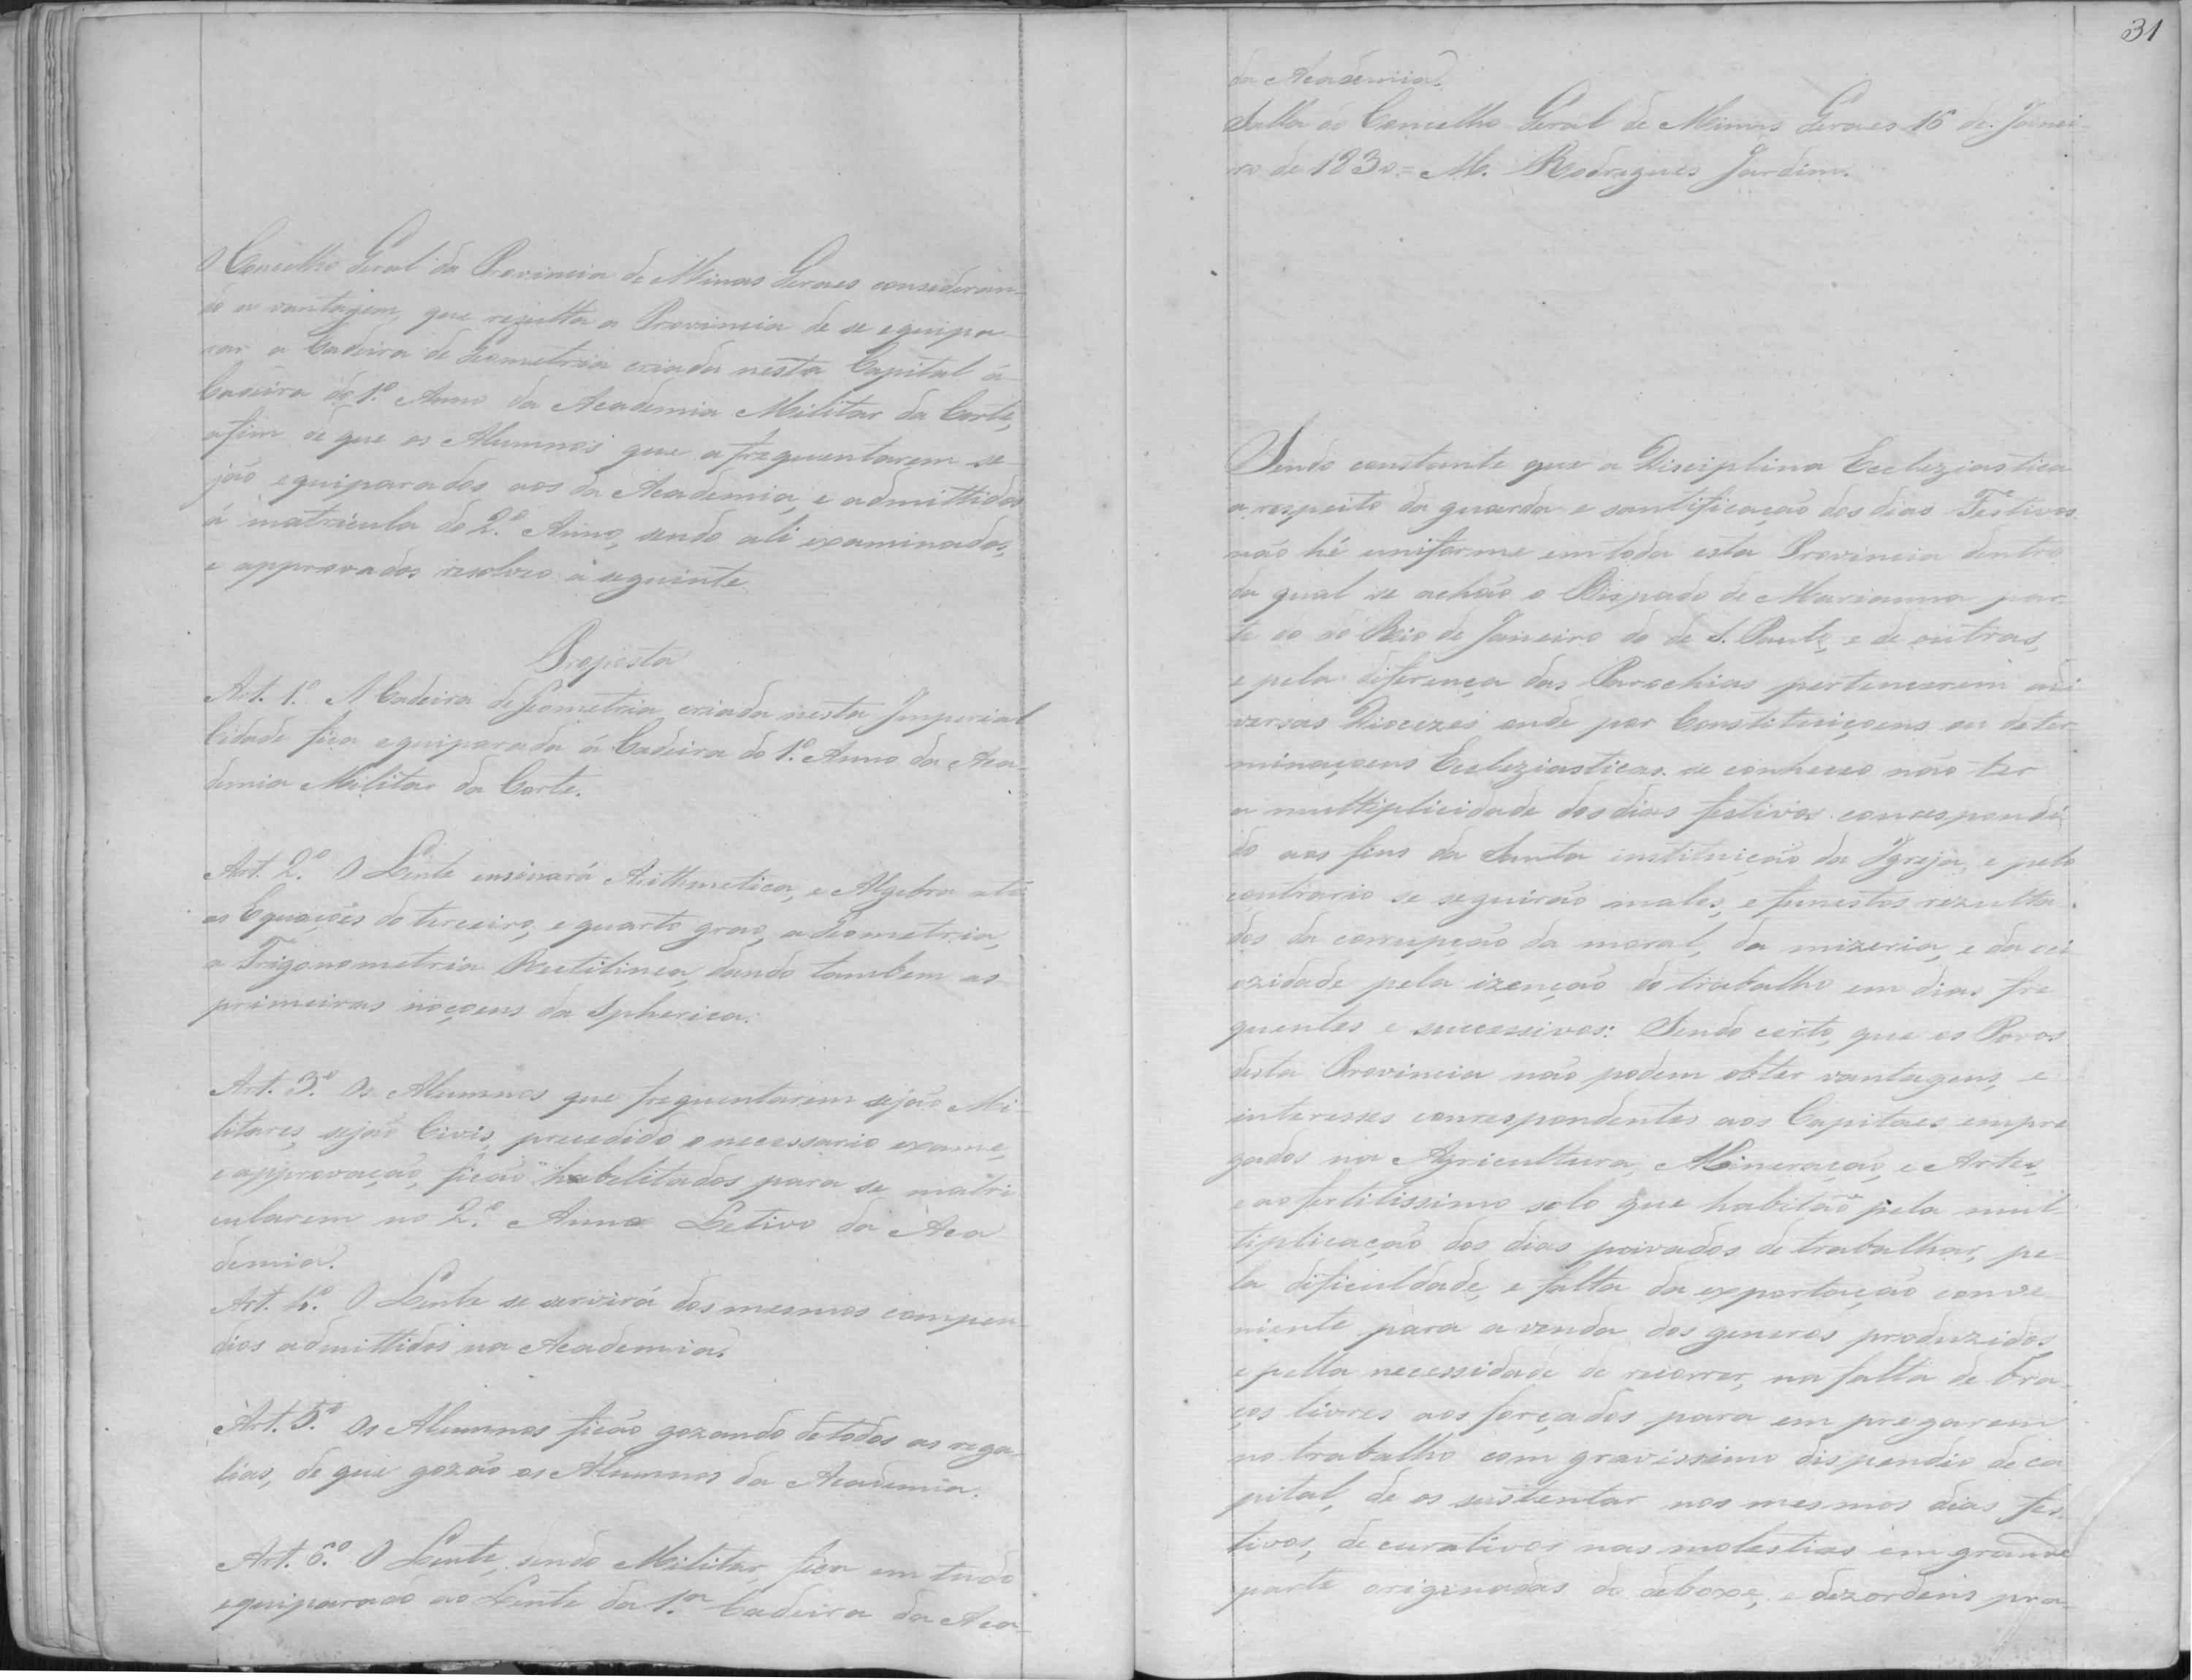 O Concelho Geral da Provincia de Minas Geraes consideran-
do a vantagem, que rezulta a Provincia de se equipa-
rar a Cadeira de Geometria criada nesta Capital á
Cadeira do 1.º Anno da Academia Militar da Corte,
afim de que os Alumnos que a frequentarem se-
jão equiparados aos da Academia, e admittidos
á matricula do 2.º Anno, sendo ali examinados,
e approvados resolveo a seguinte
Proposta
Art. 1.º A Cadeira de Geometria criada nesta Imperial
Cidade fica equiparada á Cadeira do 1.º Anno da Aca-
demia Militar da Corte.
Art. 2.º O Lente ensinará Arithmetica, e Algebra até
as Equações do terceiro, e quarto grao, a Geometria,
a Trigonometria Rectilinea, dando tambem as
primeiras noçoens da Spherica.
Art. 3.º Os Alumnos que frequentarem sejão Mi-
litares, sejão Civis, precedido o necessario exame,
e approvação, ficão habelitados para se matri-
cularem no 2.º Anno Letivo da Aca
demia.
Art. 4.º O Lente se servirá dos mesmos compen
dios admittidos na Academia.
Art. 5.º Os Alumnos ficão gozando de todos as rega-
lias, de que gozão os Alumnos da Academia.
Art. 6.º O Lente, sendo Militar, fica em tudo
equiparado ao Lente da 1.ª Cadeira da Aca-
31
da Academia.
Salla do Concelho Geral de Minas Geraes 16 de Janei-
ro de 1830 = M. Rodrigues Jardim.
Sendo constante que a Disciplina Eccleziastica
a respeito da guarda e santificação dos dias Festivos
não hé uniforme em toda esta Provincia dentro
da qual se achão o Bispado de Marianna par-
te do do Rio de Janeiro do de S. Paulo, e de outros,
e pela diferença das Parochias pertencerem a di
versas Diocezes onde por Constituiçoens ou deter
minaçoens Ecclesiasticas se conheceo não ter
a multiplicidade dos dias festivos correspondi
do aos fins da Santa instituição da Igreja, e pelo
contrario se seguirão males, e funestos rezulta
dos da corrupção da moral, da mizeria, e da oci
ozidade pela izenção do trabalho em dias fre
quentes e successivos: Sendo certo, que os Povos
desta Provincia não podem obter vantagens, e
interesses correspondentes aos Capitaes empre
gados na Agricultura, Mineração, e Artes,
e ao fertilissimo solo que habitão pela mul-
tiplicação dos dias privados de trabalhar, pe-
la dificuldade, e falta da exportação conve
niente para a venda dos generos produzidos,
e pella necessidade de recorrer, na falta de bra-
ços livres aos forçados para em pregarem
no trabalho com gravissimo dispendio de ca
pital, de os sustentar nos mesmos dias fes-
tivos, de curativos nas molestias em grande
parte originadas do deboxe, e dezordens pra-